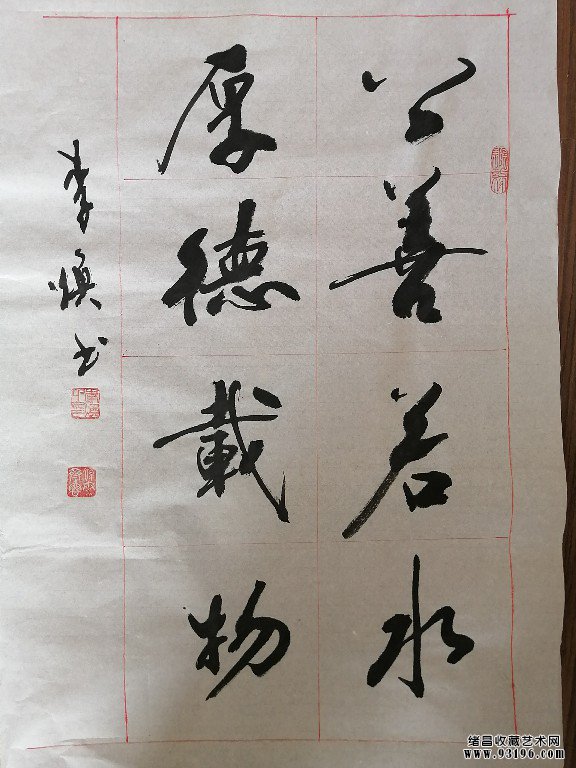 公善若水
厚德载物
李焕书
绪昌收藏艺术网
www.93196.com